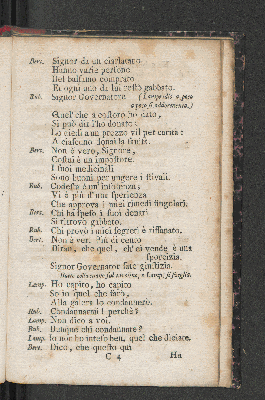 Berz. Signor da un ciarlatano
Hanno varie persone
Del balsamo comprato
Ed ogni uno da lui restò gabbato.
Rub. Signor Governatore (Lampridio a poco
a poco si addormenta.)
Quel che a costoro ho dato,
Si può dir l'ho donato:
Lo diedi a un prezzo vil per carità:
A ciascuno donai la sanità.
Berz. Non è vero, Signore,
Costui è un impostore.
I suoi medicinali
Sono buoni per ungere i stivali.
Rub. Codesta è un' insolenza;
Vi è più d' una sperienza
Che approva i miei rimedi singolari.
Berz. Chi ha speso i suoi denari
Si ritrovò gabbato.
Rub. Chi provò i miei segreti è risanato.
Berz. Non è ver. Più di cento
Diran, che quel, ch' ei vende è una
sporcizia.
Signor Governator fate giustizia.
Lamp. Ho capito, ho capito
So io quel che farò,
Alla galera lo condannerò.
Rub. Condannarmi! perchè?
Lamp. Non dico a voi.
Rub. Dunque chi condannate?
Lamp. Io non ho inteso ben, quel che diciate.
Berz. Dico, che questo qui
C 4 Ha